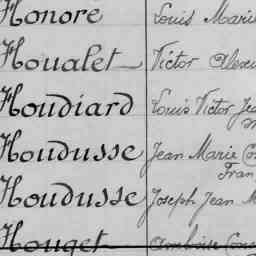 Honore Louis Marie
Houalet Victor Alexi
Houdiard Louis Victor Jea
Houdusse Jean Marie Con
Fran
Houdusse Joseph Jean M
Houget Ambroise Cone